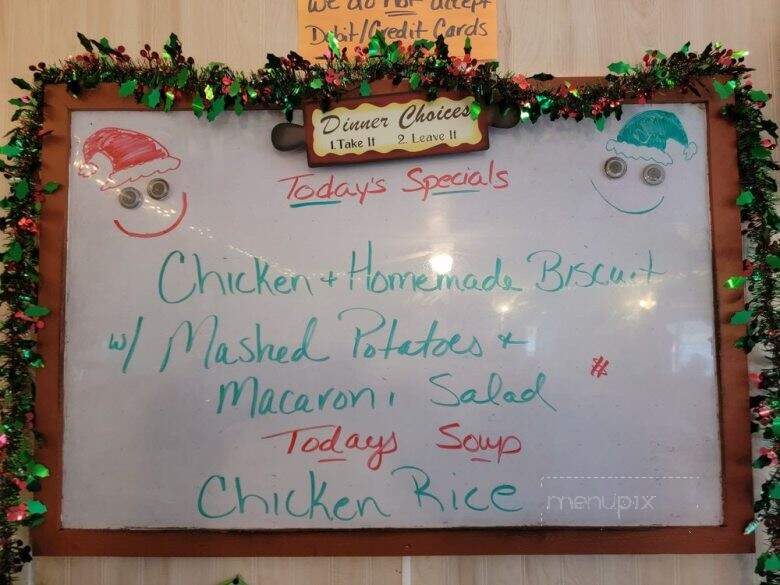 We do not accept
Debit/Credit Cards
Dinner Choices
1. Take It 2. Leave It
Today's Specials
Chicken + Homemade Biscuit
w/ Mashed Potatoes +
Macaroni Salad #
Todays Soup
Chicken Rice
menupix